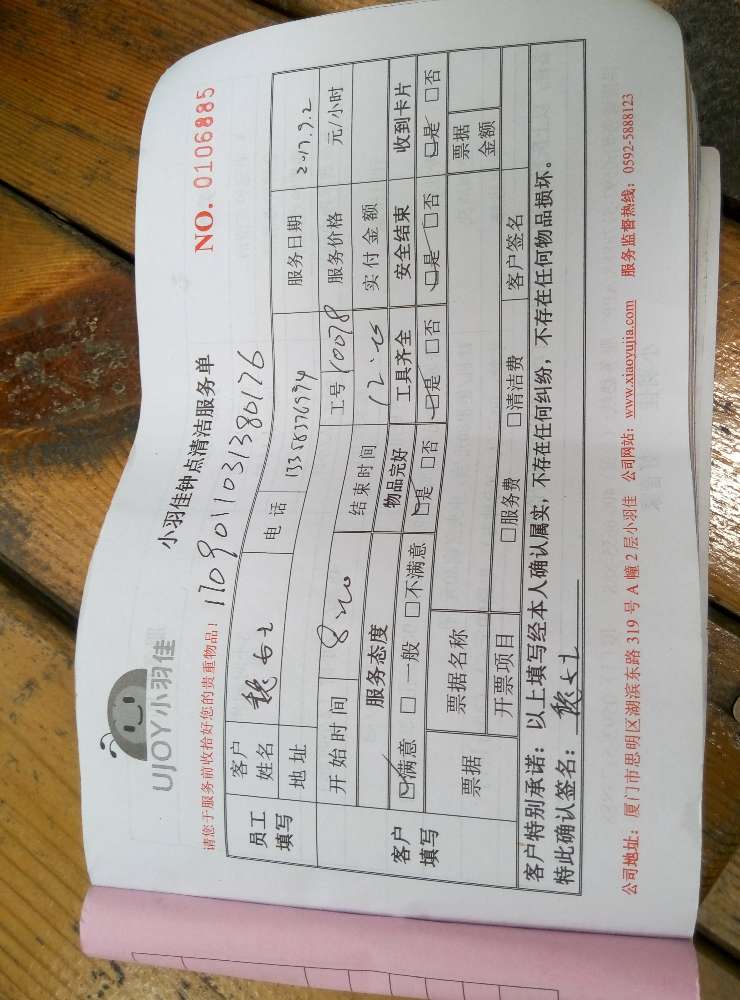 UJOY小羽佳
小羽佳钟点清洁服务单
NO. 0106885
请您于服务前收拾好您的贵重物品!
1709011031380176
员工填写
客户姓名 魏女士 电话 13358376594 服务日期 2017.9.2
地址 工号 10078 服务价格 元/小时
客户填写
开始时间 8:20 结束时间 实付金额
服务态度 物品完好 工具齐全 安全结束 收到卡片
☑满意 □一般 □不满意 ☑是 □否 ☑是 □否 ☑是 □否 ☑是 □否
票据 票据名称 票据金额
开票项目 □服务费 □清洁费 客户签名
客户特别承诺:以上填写经本人确认属实,不存在任何纠纷,不存在任何物品损坏。
特此确认签名:魏女士
公司地址:厦门市思明区湖滨东路 319 号 A 幢 2 层小羽佳 公司网站:www.xiaoyujia.com 服务监督热线:0592-5888123